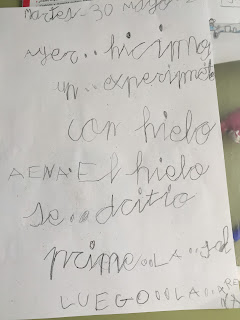 Martes-30 Mayo-2
ayer..hicimos
un..experimēto
con hielo
AENA.El hielo
se..dcitio
prime..LA..sal
LUEGO..LA..